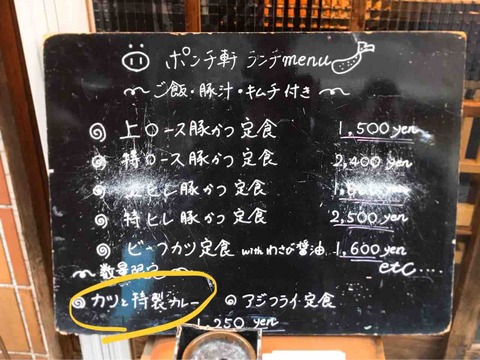 ポンチ軒 ランチmenu
〜ご飯・豚汁・キムチ付き〜
上ロース豚かつ定食 1,500yen
特ロース豚かつ定食 2,400yen
ヒレ豚かつ定食
特ヒレ豚かつ定食 2,500yen
ビーフカツ定食 withわさび醤油 1,600yen
〜数量限定〜 etc....
カツと特製カレー アジフライ定食
1,250 yen